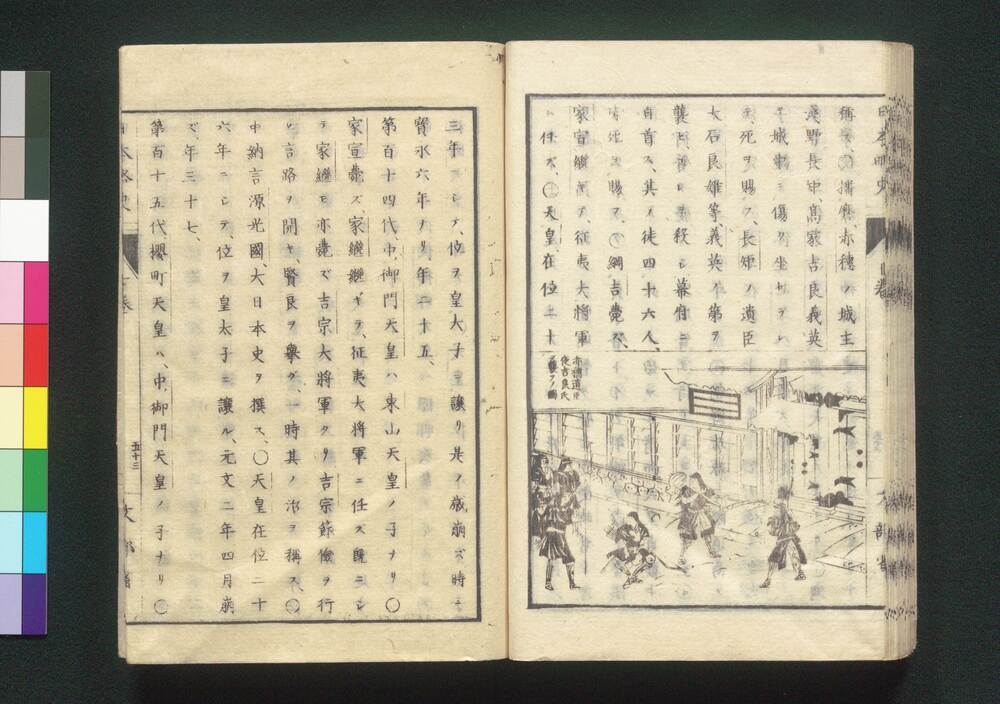 稱ス、〇播磨、赤穗ノ城主
淺野長矩、高家吉良義英
ヲ城中ニ傷ク、坐セラレ
テ、死ヲ賜フ、長矩ノ遺臣
大石良雄等義英ノ第ヲ
襲ヒ、讐ヒヲ殺シ、幕府ニ
自首ス、其ノ徒四十六人、
死ヲ賜フ、〇綱吉薨ズ、
家宣繼ギテ、征夷大將軍
ニ任ズ、〇天皇、在位二十
赤穗遺臣
夜吉良氏
ヲ襲フノ圖
三年ニシテ、位ヲ皇太子ニ讓リ是ノ歳崩ズ時ニ
寶永六年ナリ、年三十五、
第百十四代中御門天皇ハ東山天皇ノ子ナリ〇
家宣薨ズ、家繼繼ギテ、征夷大將軍ニ任ズ既ニシ
テ家繼モ亦薨ズ、吉宗大將軍タリ、吉宗節儉ヲ行
ヒ言路ヲ開キ、賢良ヲ擧グ、一時其ノ治ヲ稱ス、〇
中納言源光國、大日本史ヲ撰ス、〇天皇在位二十
六年ニシテ、位ヲ皇太子ニ讓ル、元文二年四月崩
ズ、年三十七、
第百十五代櫻町天皇ハ、中御門天皇ノ子ナリ〇
五十三